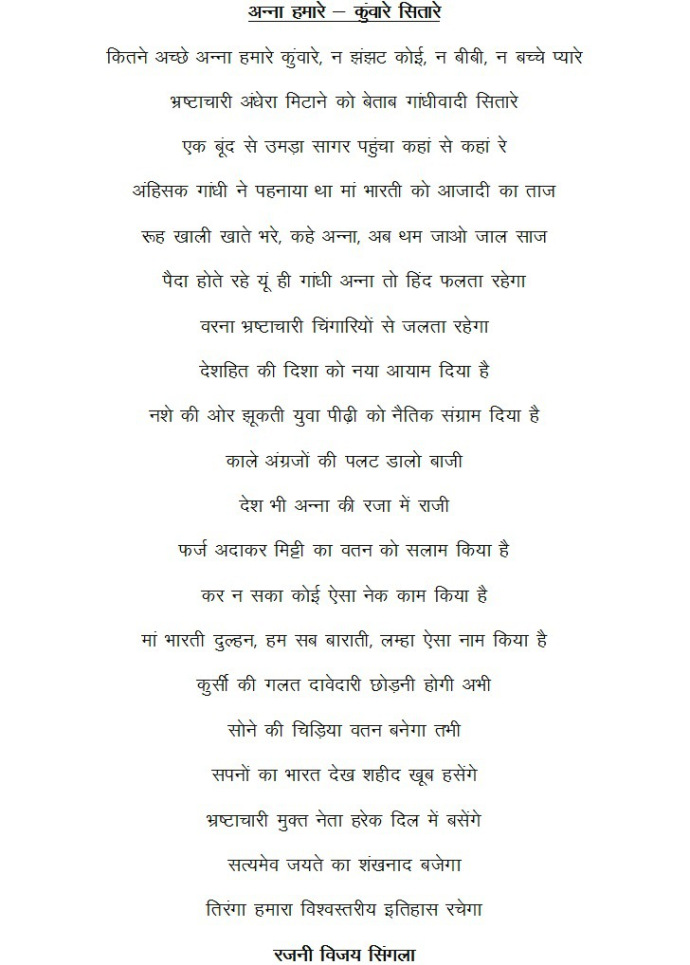 अन्ना हमारे – कुंवारे सितारे
कितने अच्छे अन्ना हमारे कुंवारे, न झंझट कोई, न बीबी, न बच्चे प्यारे
भ्रष्टाचारी अंधेरा मिटाने को बेताब गांधीवादी सितारे
एक बूंद से उमड़ा सागर पहुंचा कहां से कहां रे
अंहिसक गांधी ने पहनाया था मां भारती को आजादी का ताज
रूह खाली खाते भरे, कहे अन्ना, अब थम जाओ जाल साज
पैदा होते रहे यूं ही गांधी अन्ना तो हिंद फलता रहेगा
वरना भ्रष्टाचारी चिंगारियों से जलता रहेगा
देशहित की दिशा को नया आयाम दिया है
नशे की ओर झूकती युवा पीढ़ी को नैतिक संग्राम दिया है
काले अंग्रजों की पलट डालो बाजी
देश भी अन्ना की रजा में राजी
फर्ज अदाकर मिट्टी का वतन को सलाम किया है
कर न सका कोई ऐसा नेक काम किया है
मां भारती दुल्हन, हम सब बाराती, लम्हा ऐसा नाम किया है
कुर्सी की गलत दावेदारी छोड़नी होगी अभी
सोने की चिड़िया वतन बनेगा तभी
सपनों का भारत देख शहीद खूब हसेंगे
भ्रष्टाचारी मुक्त नेता हरेक दिल में बसेंगे
सत्यमेव जयते का शंखनाद बजेगा
तिरंगा हमारा विश्वस्तरीय इतिहास रचेगा
रजनी विजय सिंगला